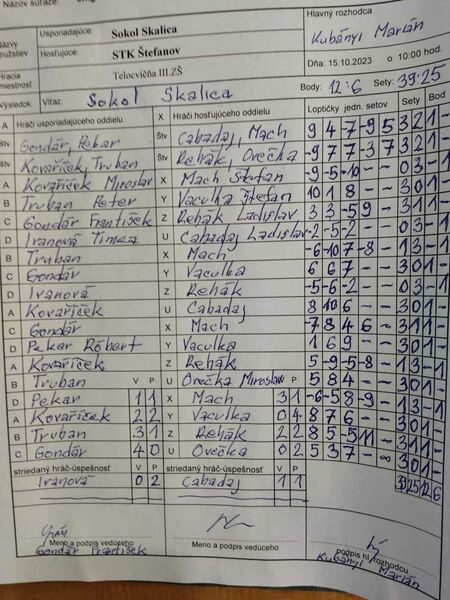 Názov súťaže:
Hlavný rozhodca
Usporiadajúce: Sokol Skalica
Kubányi Marián
Názvy družstiev
Hosťujúce: STK Štefanov
Hracia miestnosť
Telocvičňa III.ZŠ
Dňa: 15.10.2023 o 10:00 hod.
Výsledok: Víťaz: Sokol Skalica Body: 12:6 Sety: 39:25
A Hráči usporiadajúceho oddielu X Hráči hosťujúceho oddielu Loptičky jedn. setov Sety Bod
Štv Gondár, Pekar Štv Cabadaj, Mach 9 4 -7 -9 5 3 2 1 -
Štv Kovaříček, Truban Štv Rehák, Orečka -9 7 7 -3 7 3 2 1 -
A Kovaříček Miroslav X Mach Štefan -9 -5 -10 - - 0 3 - 1
B Truban Peter Y Vaculka Štefan 10 1 8 - - 3 0 1 -
C Gondár František Z Rehák Ladislav 3 3 -5 9 - 3 1 1 -
D Ivanová Timea U Cabadaj Ladislav -2 -5 -2 - - 0 3 - 1
B Truban X Mach -6 -10 7 -8 - 1 3 - 1
C Gondár Y Vaculka 6 6 7 - - 3 0 1 -
D Ivanová Z Rehák -5 -6 -2 - - 0 3 - 1
A Kovaříček U Cabadaj 8 10 6 - - 3 0 1 -
C Gondár X Mach -7 8 4 6 - 3 1 1 -
D Pekar Róbert Y Vaculka 1 6 9 - - 3 0 1 -
A Kovaříček Z Rehák 5 -9 -5 -8 - 1 3 - 1
B Truban V P U Orečka Miroslav V P 5 8 4 - - 3 0 1 -
D Pekar 1 1 X Mach 3 1 -6 -5 8 -9 - 1 3 - 1
A Kovaříček 2 2 Y Vaculka 0 4 8 7 6 - - 3 0 1 -
B Truban 3 1 Z Rehák 2 2 8 5 -5 11 - 3 1 1 -
C Gondár 4 0 U Orečka 0 2 5 3 7 - - 3 0 1 -
striedaný hráč-úspešnosť V P striedaný hráč-úspešnosť V P 39 25 12 6
Ivanová 0 2 Cabadaj 1 1
Meno a podpis vedúceho Meno a podpis vedúceho podpis hl. rozhodcu
Gondár František Kubányi Marián